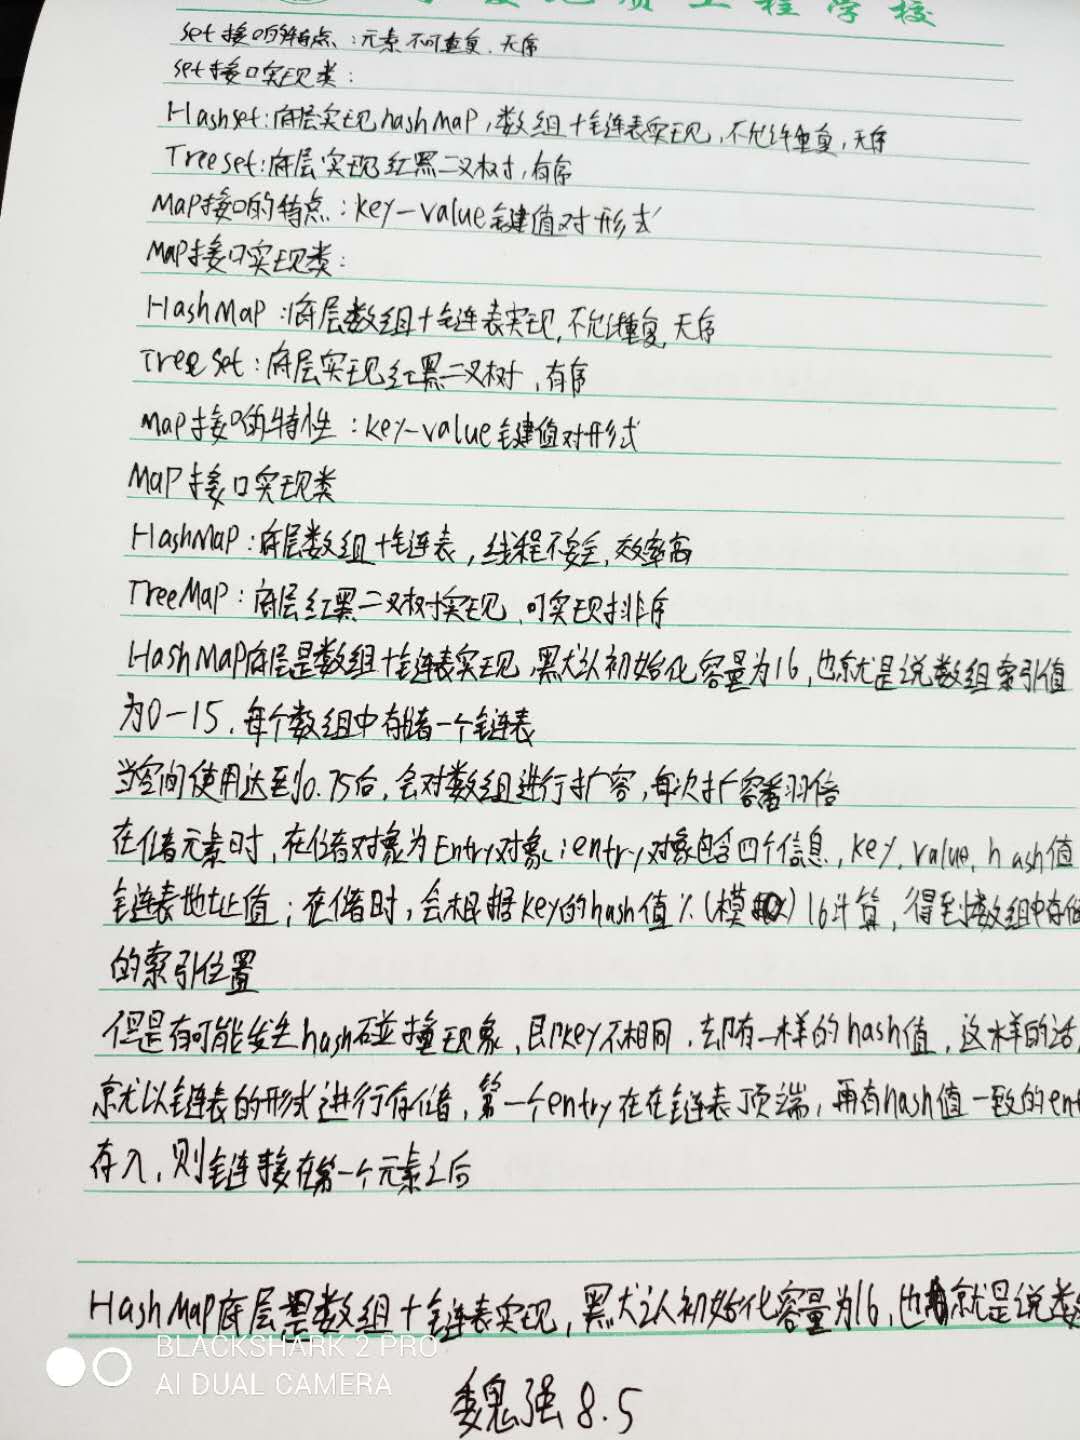 地质工程学校
set接口的特点：元素不可重复，无序
set接口实现类：
Hashset：底层实现hashMap，数组+链表实现，不允许重复，无序
Treeset：底层实现红黑二叉树，有序
Map接口的特点：key-value键值对形式
Map接口实现类：
HashMap：底层数组+链表实现，不允许重复，无序
Treeset：底层实现红黑二叉树，有序
Map接口的特性：key-value键值对形式
Map接口实现类
HashMap：底层数组+链表，线程不安全，效率高
TreeMap：底层红黑二叉树实现，可实现排序
HashMap底层是数组+链表实现，默认初始化容量为16，也就是说数组索引值
为0-15，每个数组中存储一个链表
当空间使用达到0.75后，会对数组进行扩容，每次扩容番羽倍
在储元素时，在储对象为Entry对象；entry对象包含四个信息，key，value，hash值
链表地址值；在储时，会根据key的hash值%（模）16计算，得到数组中存储
的索引位置
但是有可能发生hash碰撞现象，即key不相同，却有一样的hash值，这样的话
就以链表的形式进行存储，第一个entry在在链表顶端，再有hash值一致的ent
存入，则链接在第一个元素之后
HashMap底层是数组+链表实现，默认初始化容量为16，也就是说数
BLACKSHARK 2 PRO
AI DUAL CAMERA
魏强 8.5